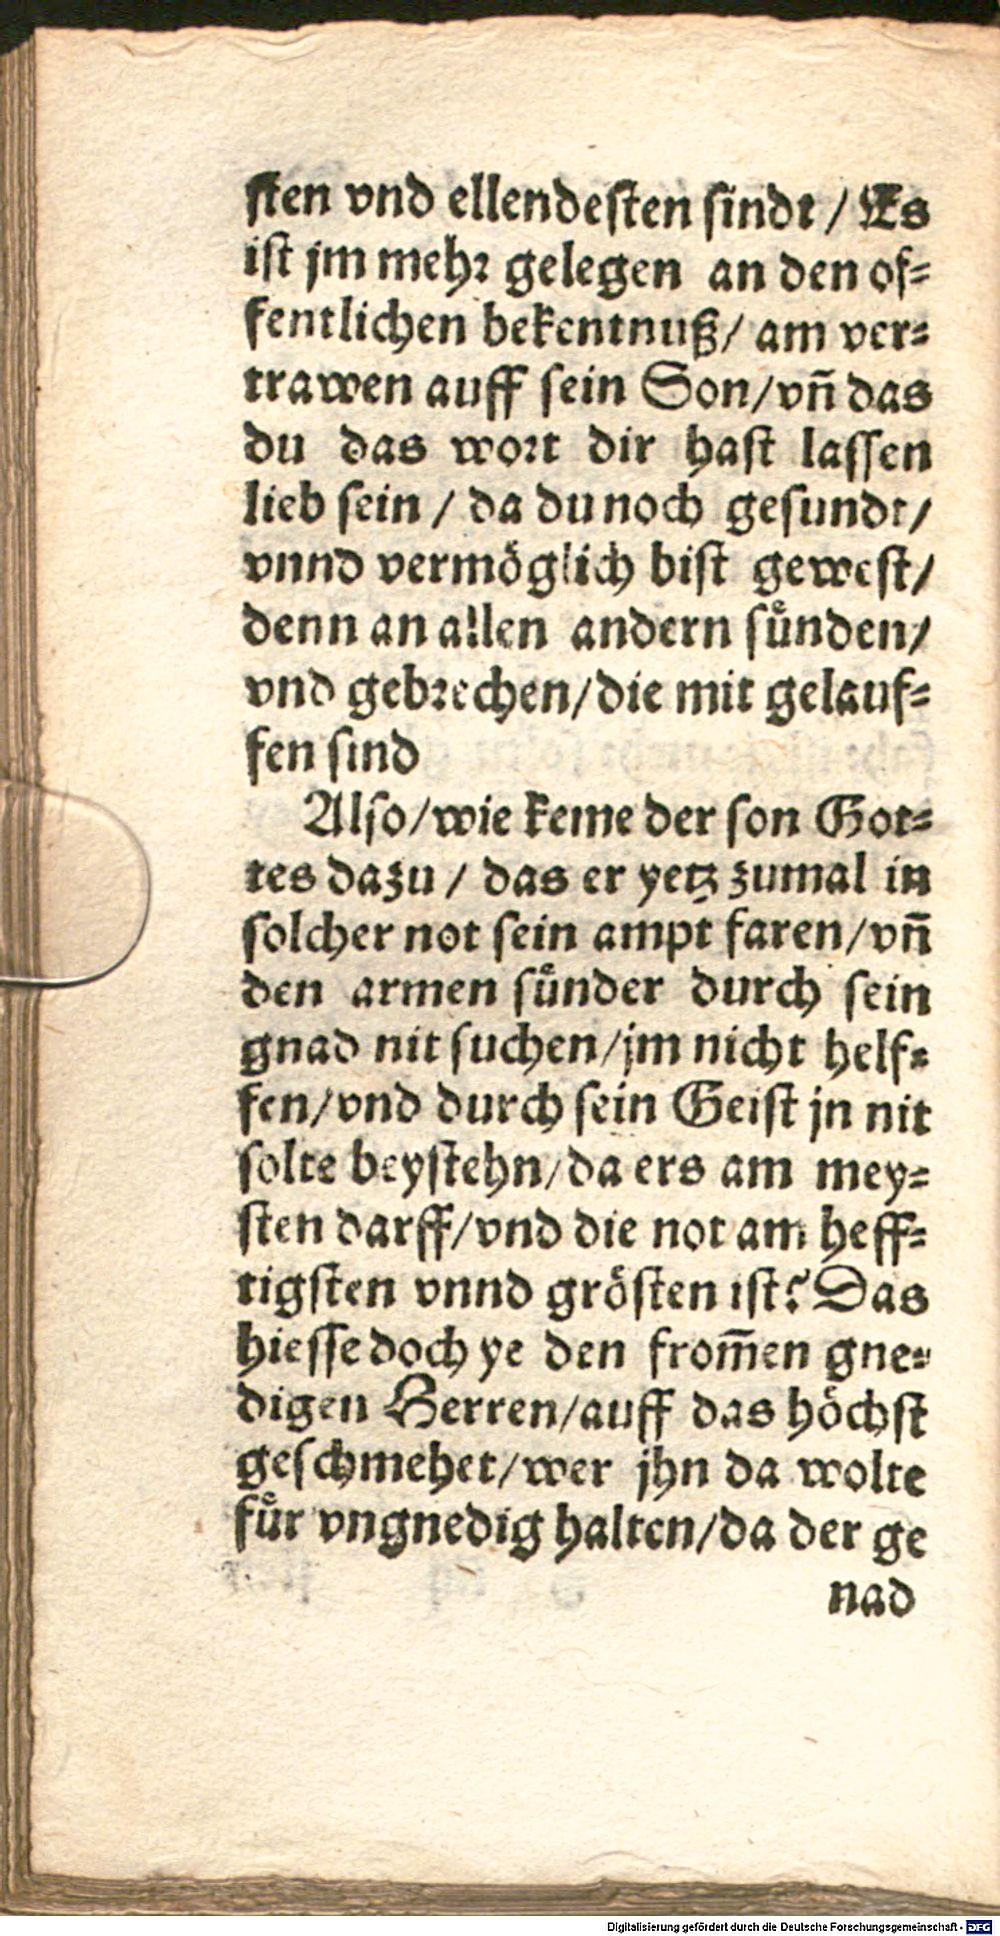 ſten vnd ellendeſten ſindt / Es
iſt jm mehꝛ gelegen an den of⸗
fentlichen bekentnuß/ am ver⸗
trawen auff ſein Son/vn̄ das
du das woꝛt dir haſt laſſen
lieb ſein / da du noch geſundt/
vnnd vermoͤglich biſt geweſt/
denn an allen andern ſuͤnden/
vnd gebꝛechen/die mit gelauf⸗
fen ſind
Alſo/wie keme der ſon Got⸗
tes dazu / das er yetz zumal in
ſolcher not ſein ampt faren/vn̄
den armen ſuͤnder durch ſein
gnad nit ſuchen/jm nicht helf⸗
fen/vnd durch ſein Geiſt jn nit
ſolte beyſtehn/da ers am mey⸗
ſten darff/vnd die not am heff⸗
tigſten vnnd groͤſten iſt? Das
hieſſe doch ye den from̄en gne⸗
digen Herren/auff das hoͤchſt
geſchmehet/wer jhn da wolte
fuͤr vngnedig halten/da der ge
nad
Digitalisierung gefördert durch die Deutsche Forschungsgemeinschaft - DFG